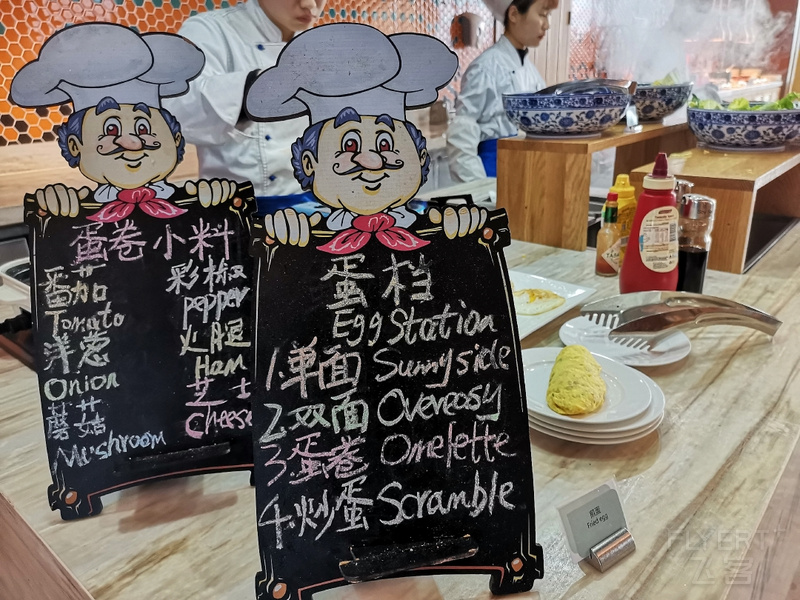 蛋卷小料
番茄
Tomato
洋葱
Onion
蘑菇
Mushroom
彩椒
pepper
火腿
Ham
芝士
Cheese
蛋档
Egg Station
1.单面 Sunnyside
2.双面 Overeasy
3.蛋卷 Omelette
4.炒蛋 Scramble
煎蛋
Fried egg
FLYERT
飞客